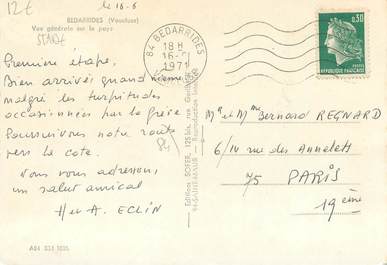 12€
le 16-6
BEDARRIDES (Vaucluse)
Vue générale sur le pays
START
Première étape.
Bien arrivés quand même
malgré les turpitudes
occasionnées par la grève
Poursuivons notre route
vers la cote.
Nous vous adressons
un salut amical
H et A. ECLIN
84
84 BEDARRIDES
18 H
16-7
1971
0,30
REPUBLIQUE FRANÇAISE
POSTES
Editions SOFER, 125 bis, rue
Mr et Mme Bernard REGNARD
6/IV rue des Annelets
75 PARIS
19ème